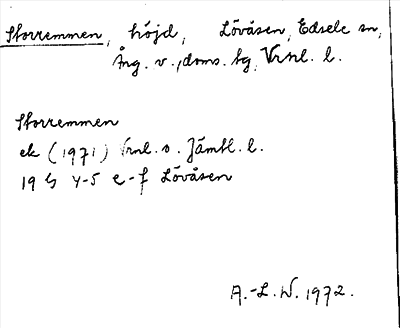 Storremmen, höjd, Lövåsen, Edsele sn,
Ång. v., doms. tg, Vrnl. l.
Storremmen
ek (1971) Vrnl. o. Jämtl. l.
19 G 4-5 e-f Lövåsen
A.-L. W. 1972.